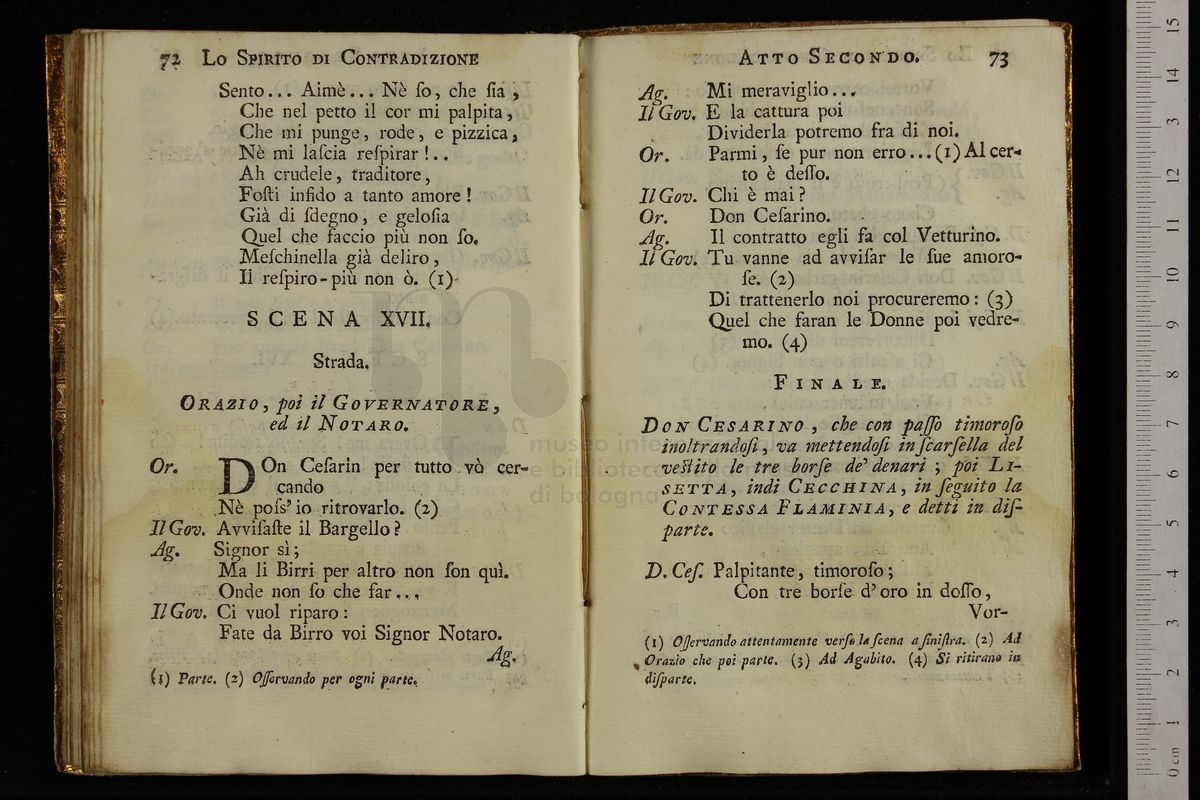 72 Lo Spirito di Contradizione
Sento... Aimè... Nè ſo, che ſia,
Che nel petto il cor mi palpita,
Che mi punge, rode, e pizzica,
Nè mi laſcia reſpirar!..
Ah crudele, traditore,
Foſti infido a tanto amore!
Già di ſdegno, e geloſia
Quel che faccio più non ſo.
Meſchinella già deliro,
Il reſpiro più non ò. (1)
SCENA XVII.
Strada.
Orazio, poi il Governatore,
ed il Notaro.
Or. DOn Ceſarin per tutto vò cer-
cando
Nè poſs' io ritrovarlo. (2)
Il Gov. Avviſaſte il Bargello?
Ag. Signor sì;
Ma li Birri per altro non ſon quì.
Onde non ſo che far...
Il Gov. Ci vuol riparo:
Fate da Birro voi Signor Notaro.
Ag.
(1) Parte. (2) Oſſervando per ogni parte.
Atto Secondo. 73
Ag. Mi meraviglio...
Il Gov. E la cattura poi
Dividerla potremo fra di noi.
Or. Parmi, ſe pur non erro...(1) Al cer-
to è deſſo.
Il Gov. Chi è mai?
Or. Don Ceſarino.
Ag. Il contratto egli fa col Vetturino.
Il Gov. Tu vanne ad avviſar le ſue amoro-
ſe. (2)
Di trattenerlo noi procureremo: (3)
Quel che faran le Donne poi vedre-
mo. (4)
Finale.
Don Cesarino, che con paſſo timoroſo
inoltrandoſi, va mettendoſi in ſcarſella del
veſtito le tre borſe de' denari; poi Li-
setta, indi Cecchina, in ſeguito la
Contessa Flaminia, e detti in diſ-
parte.
D. Ceſ. Palpitante, timoroſo;
Con tre borſe d' oro in doſſo,
Vor-
(1) Oſſervando attentamente verſo la ſcena a ſiniſtra. (2) Ad
Orazio che poi parte. (3) Ad Agabito. (4) Si ritirano in
diſparte.